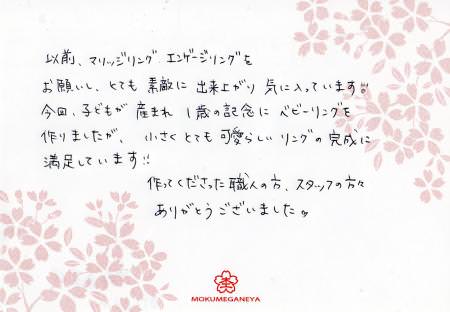 以前、マリッジリング エンゲージリングを
お願いし、とても 素敵に 出来上がり 気に入っています!!
今回、子どもが 産まれ 1歳の記念に ベビーリングを
作りましたが、 小さく とても 可愛らしい リングの 完成に
満足しています!!
作ってくださった 職人の方、スタッフの方々
ありがとうございました
MOKUMEGANEYA